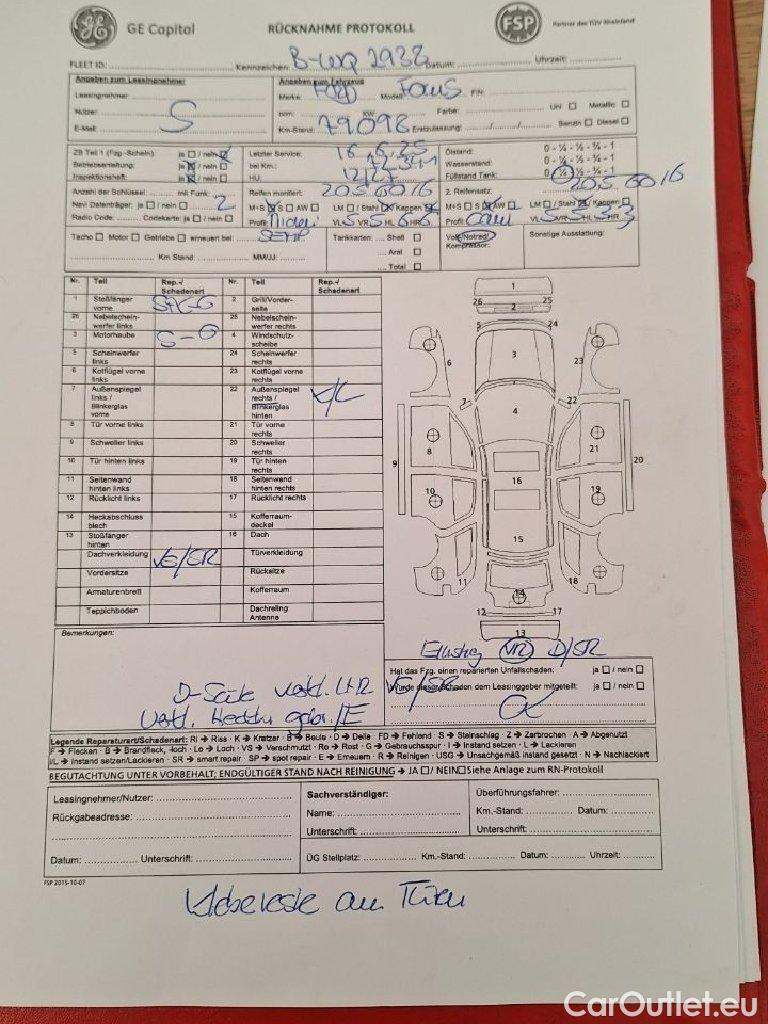 GE Capital
RÜCKNAHME PROTOKOLL
FSP
Partner des TÜV Rheinland
FLEET ID: Kennzeichen: B-WQ 2938 Datum: Uhrzeit:
Angaben zum Leasingnehmer
Angaben zum Fahrzeug
Leasingnehmer:
Marke: Ford Modell: Focus FIN:
Nutzer: S
ccm: KW: Farbe: Uni ☐ Metallic ☐
E-Mail:
Km-Stand: 79098 Erstzulassung: Benzin ☐ Diesel ☐
ZB Teil 1 (Fzg.-Schein): ja ☐ / nein ☒
Letzter Service: 16.6.25
Ölstand: 0 - ¼ - ½ - ¾ - 1
Betriebsanleitung: ja ☒ / nein ☐
bei Km.:
Wasserstand: 0 - ¼ - ½ - ¾ - 1
Inspektionsheft: ja ☒ / nein ☐
HU: 12/27
Füllstand Tank: 0 - ¼ - ½ - ¾ - 1
Anzahl der Schlüssel: mit Funk: 2
Reifen montiert: 205 60 16
2. Reifensatz: 205 60 16
Navi Datenträger: ja ☐ / nein ☐
M+S ☒ S ☐ AW ☐ LM ☐ / Stahl ☒ / Kappen ☒
M+S ☐ S ☒ AW ☐ LM ☐ / Stahl ☒ / Kappen ☐
Radio Code: Codekarte: ja ☐ / nein ☐
Profil: VL 5 VR 5 HL 6 HR 6
Profil: Conti VL 5 VR 5 HL 3 HR 3
Tacho ☐ Motor ☐ Getriebe ☐ erneuert bei: SEMP
Tankkarten: Shell ☐
Voll/Notrad/
Kompressor:
Sonstige Ausstattung:
Aral ☐
Km Stand: MM/JJ:
Total ☐
Nr. Teil Rep.-/ Schadenart Nr. Teil Rep.-/ Schadenart
1 Stoßfänger vorne 2 Grill/Vorderseite
26 Nebelscheinwerfer links 25 Nebelscheinwerfer rechts
3 Motorhaube S-G 4 Windschutzscheibe
5 Scheinwerfer links 24 Scheinwerfer rechts
6 Kotflügel vorne links 23 Kotflügel vorne rechts
7 Außenspiegel links / Blinkerglas vorne 22 Außenspiegel rechts / Blinkerglas hinten K/L
8 Tür vorne links 21 Tür vorne rechts
9 Schweller links 20 Schweller rechts
10 Tür hinten links 19 Tür hinten rechts
11 Seitenwand hinten links 18 Seitenwand hinten rechts
12 Rücklicht links 17 Rücklicht rechts
14 Heckabschlussblech 15 Kofferraumdeckel
13 Stoßfänger hinten 16 Dach
Dachverkleidung VS/SR Türverkleidung
Vordersitze Rücksitze
Armaturenbrett Kofferraum
Teppichboden Dachreling Antenne
1
26 25
2
24
5
3
6
23
7
22
4
8
21
9
20
16
10
19
15
11
18
14
12 17
13
Bemerkungen:
Einstieg VR D/SR
Hat das Fzg. einen reparierten Unfallschaden: ja ☐ / nein ☐
Wurde dieser Schaden dem Leasinggeber mitgeteilt: ja ☐ / nein ☐
D-Säule Verkl. HR VS/SR
Verkl. Heckklappe gebr./E
Legende Reparaturart/Schadenart: Ri → Riss · K → Kratzer · B → Beule · D → Delle FD → Fehlend S → Steinschlag · Z → Zerbrochen · A → Abgenutzt
F → Flecken · B → Brandfleck, -loch · Lo → Loch · VS → Verschmutzt · Ro → Rost · G → Gebrauchsspur · I → Instand setzen · L → Lackieren
I/L → Instand setzen/Lackieren · SR → smart repair · SP → spot repair · E → Erneuern · R → Reinigen · USG → Unsachgemäß instand gesetzt · N → Nachlackiert
BEGUTACHTUNG UNTER VORBEHALT; ENDGÜLTIGER STAND NACH REINIGUNG → JA ☐/ NEIN☐ Siehe Anlage zum RN-Protokoll
Leasingnehmer/Nutzer:
Sachverständiger:
Überführungsfahrer:
Rückgabeadresse:
Name:
Km.-Stand: Datum:
Unterschrift:
Unterschrift:
Datum: Unterschrift:
ÜG Stellplatz: Km.-Stand: Datum: Uhrzeit:
FSP 2015-10-07
Klebereste an Türen
CarOutlet.eu